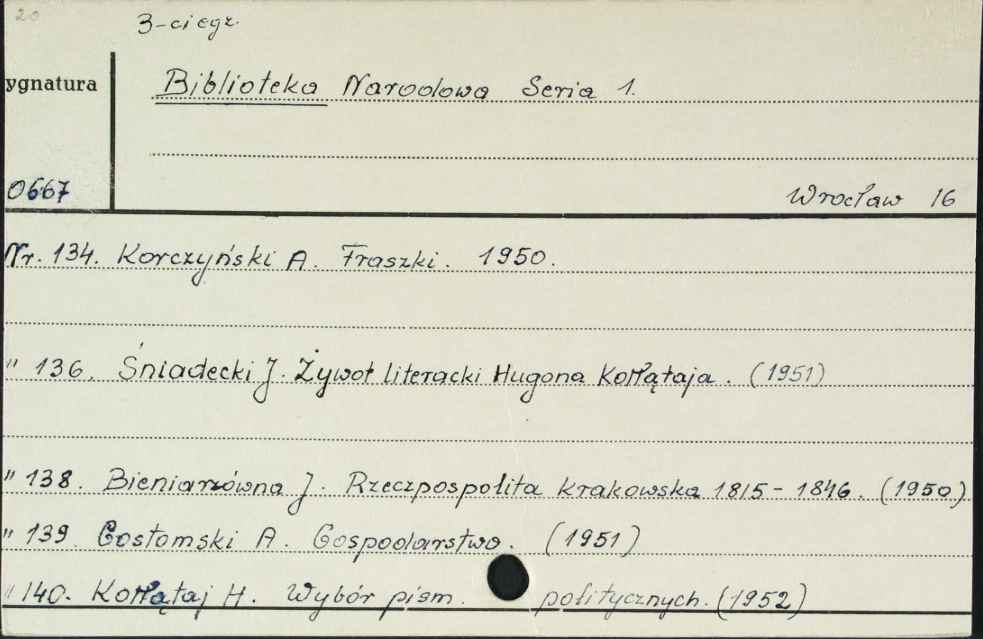 20
3-ci egz.
ygnatura
Biblioteka Narodowa Seria 1.
0667
Wrocław 16
Nr. 134. Korczyński A. Fraszki. 1950.
" 136. Śniadecki J. Żywot literacki Hugona Kołłątaja. (1951)
" 138. Bieniarzówna J. Rzeczpospolita Krakowska 1815-1846. (1950)
" 139. Gostomski A. Gospodarstwo. (1951)
" 140. Kołłątaj H. Wybór pism. politycznych. (1952)